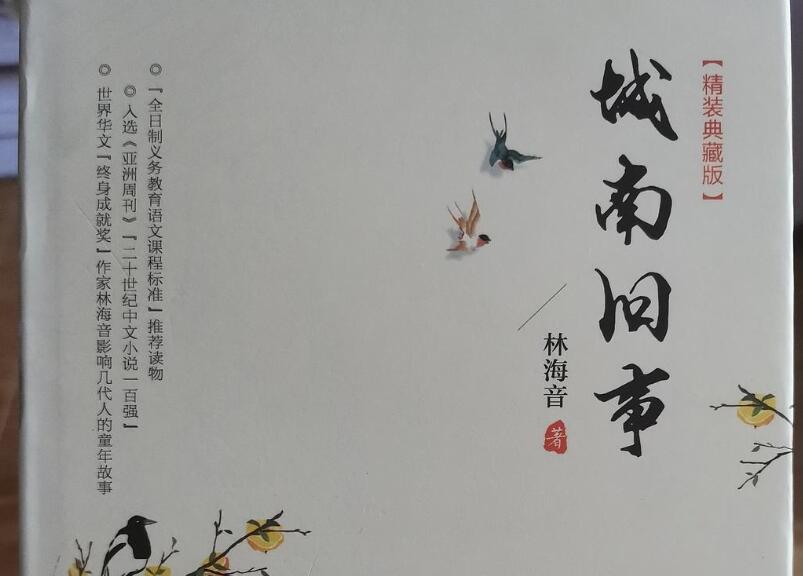 【精装典藏版】
城南旧事
林海音
著
◎『全日制义务教育语文课程标准』推荐读物
◎入选《亚洲周刊》『二十世纪中文小说一百强』
◎世界华文『终身成就奖』作家林海音影响几代人的童年故事